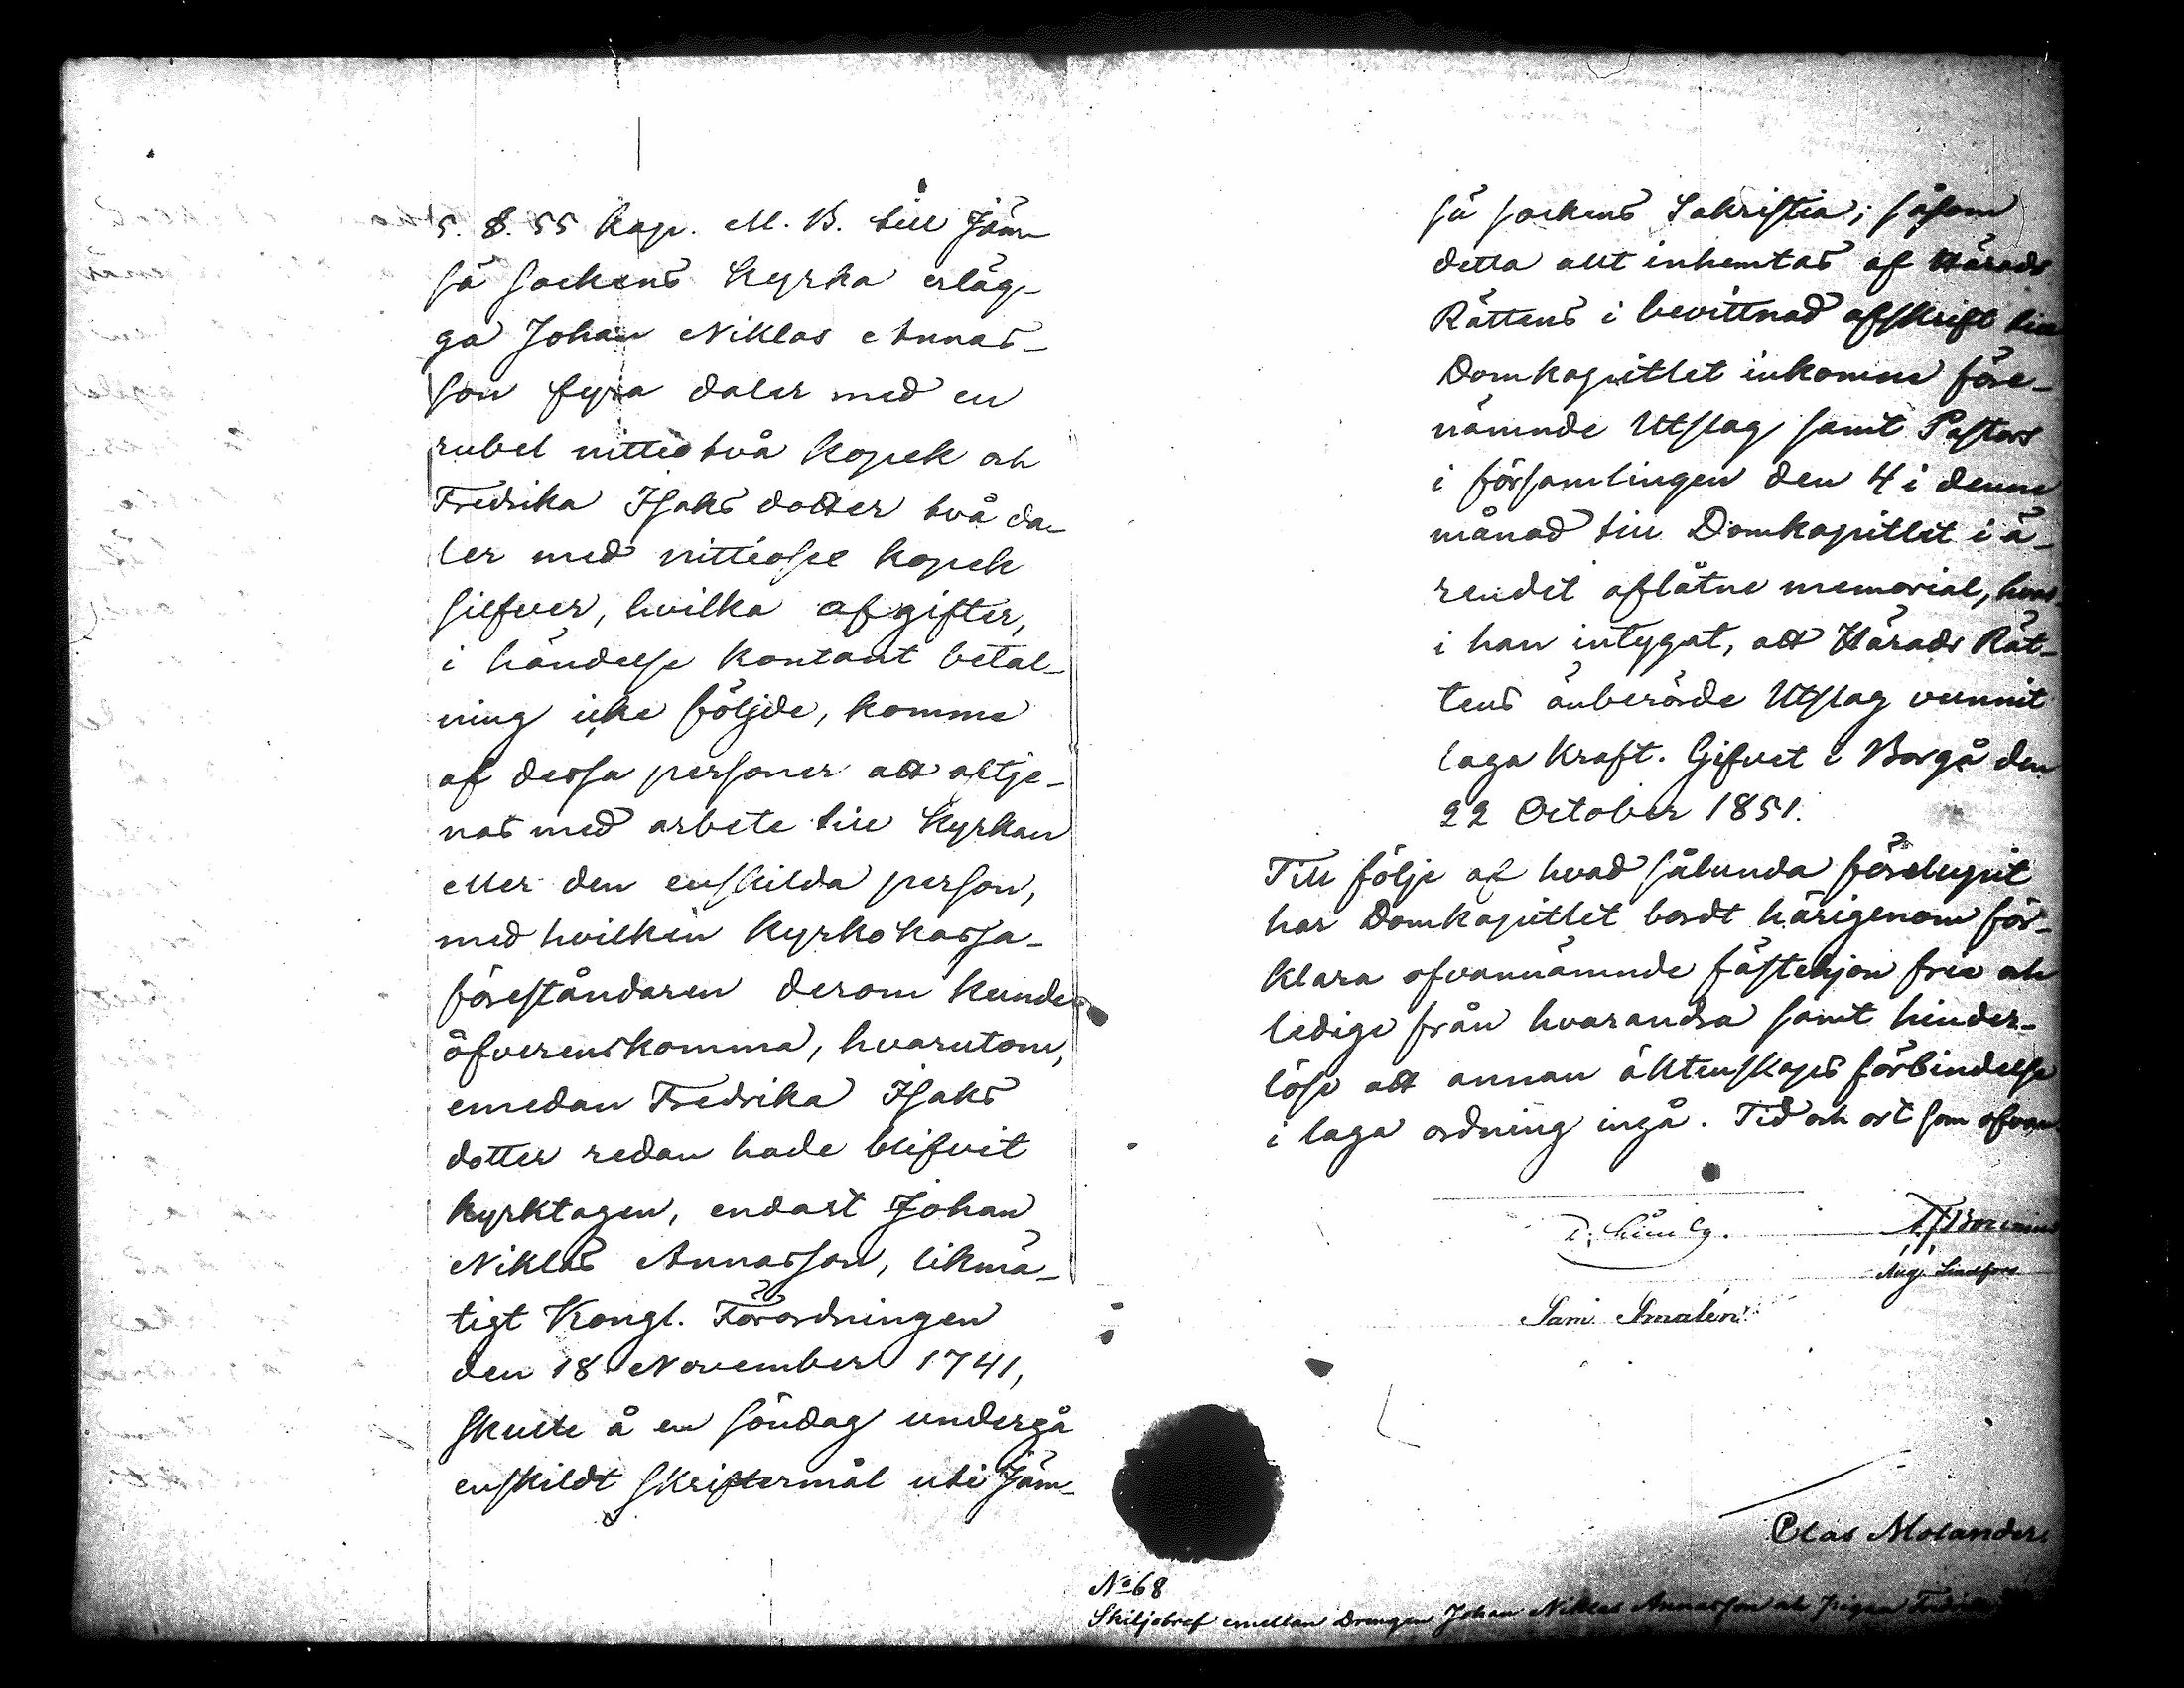 5. §. 55 Kap. M. B. till Jäm
sä Sockens Kyrka erläg-
ga Johan Niklas Annas-
son fyra daler med en
rubel nittiotvå kopek och
Fredrika Isaks dotter två da-
ler med nittiosex kopek
silfver, hvilka afgifter,
i händelse kontant betal-
ning icke följde, komme
af dessa personer att aftje-
nas med arbete till Kyrkan
eller den enskilda person,
med hvilken Kyrkokassa-
föreståndaren derom kunde
öfverenskomma, hvarutom,
emedan Fredrika Isaks
dotter redan hade blifvit
kyrktagen, endast Johan
Niklas Annasson, likmä-
tigt Kongl. Förordningen
den 18 November 1741,
skulle å en söndag undergå
enskildt skriftermål uti Jäm-
sä sockens Sakristia; såsom
detta allt inhemtas af Härads
Rättens i bevittnad afskrift till
Domkapitlet inkomne före-
nämnde Utslag samt Pastors
i församlingen den 4 i denne
månad till Domkapitlet i ä-
rendet aflåtne memorial, hvar-
i han intygat, att Härads Rät-
tens änberörde Utslag vunnit
laga kraft. Gifvet i Borgå den
22 October 1851.
Till följe af hvad sålunda förelupit
har Domkapitlet bordt härigenom för-
klara ofvannämnde fästehjon fria och
ledige från hvarandra samt hinder-
löse att annan äktenskaps förbindelse
i laga ordning ingå. Tid och ort som ofvan
Aug. Lindfors
Sam. Smalén
Clas Molander.
No 68
Skiljobref emellan Drengen Johan Niklas Annasson och pigan